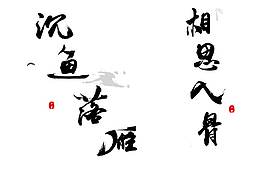 沉鱼落雁
相思入骨